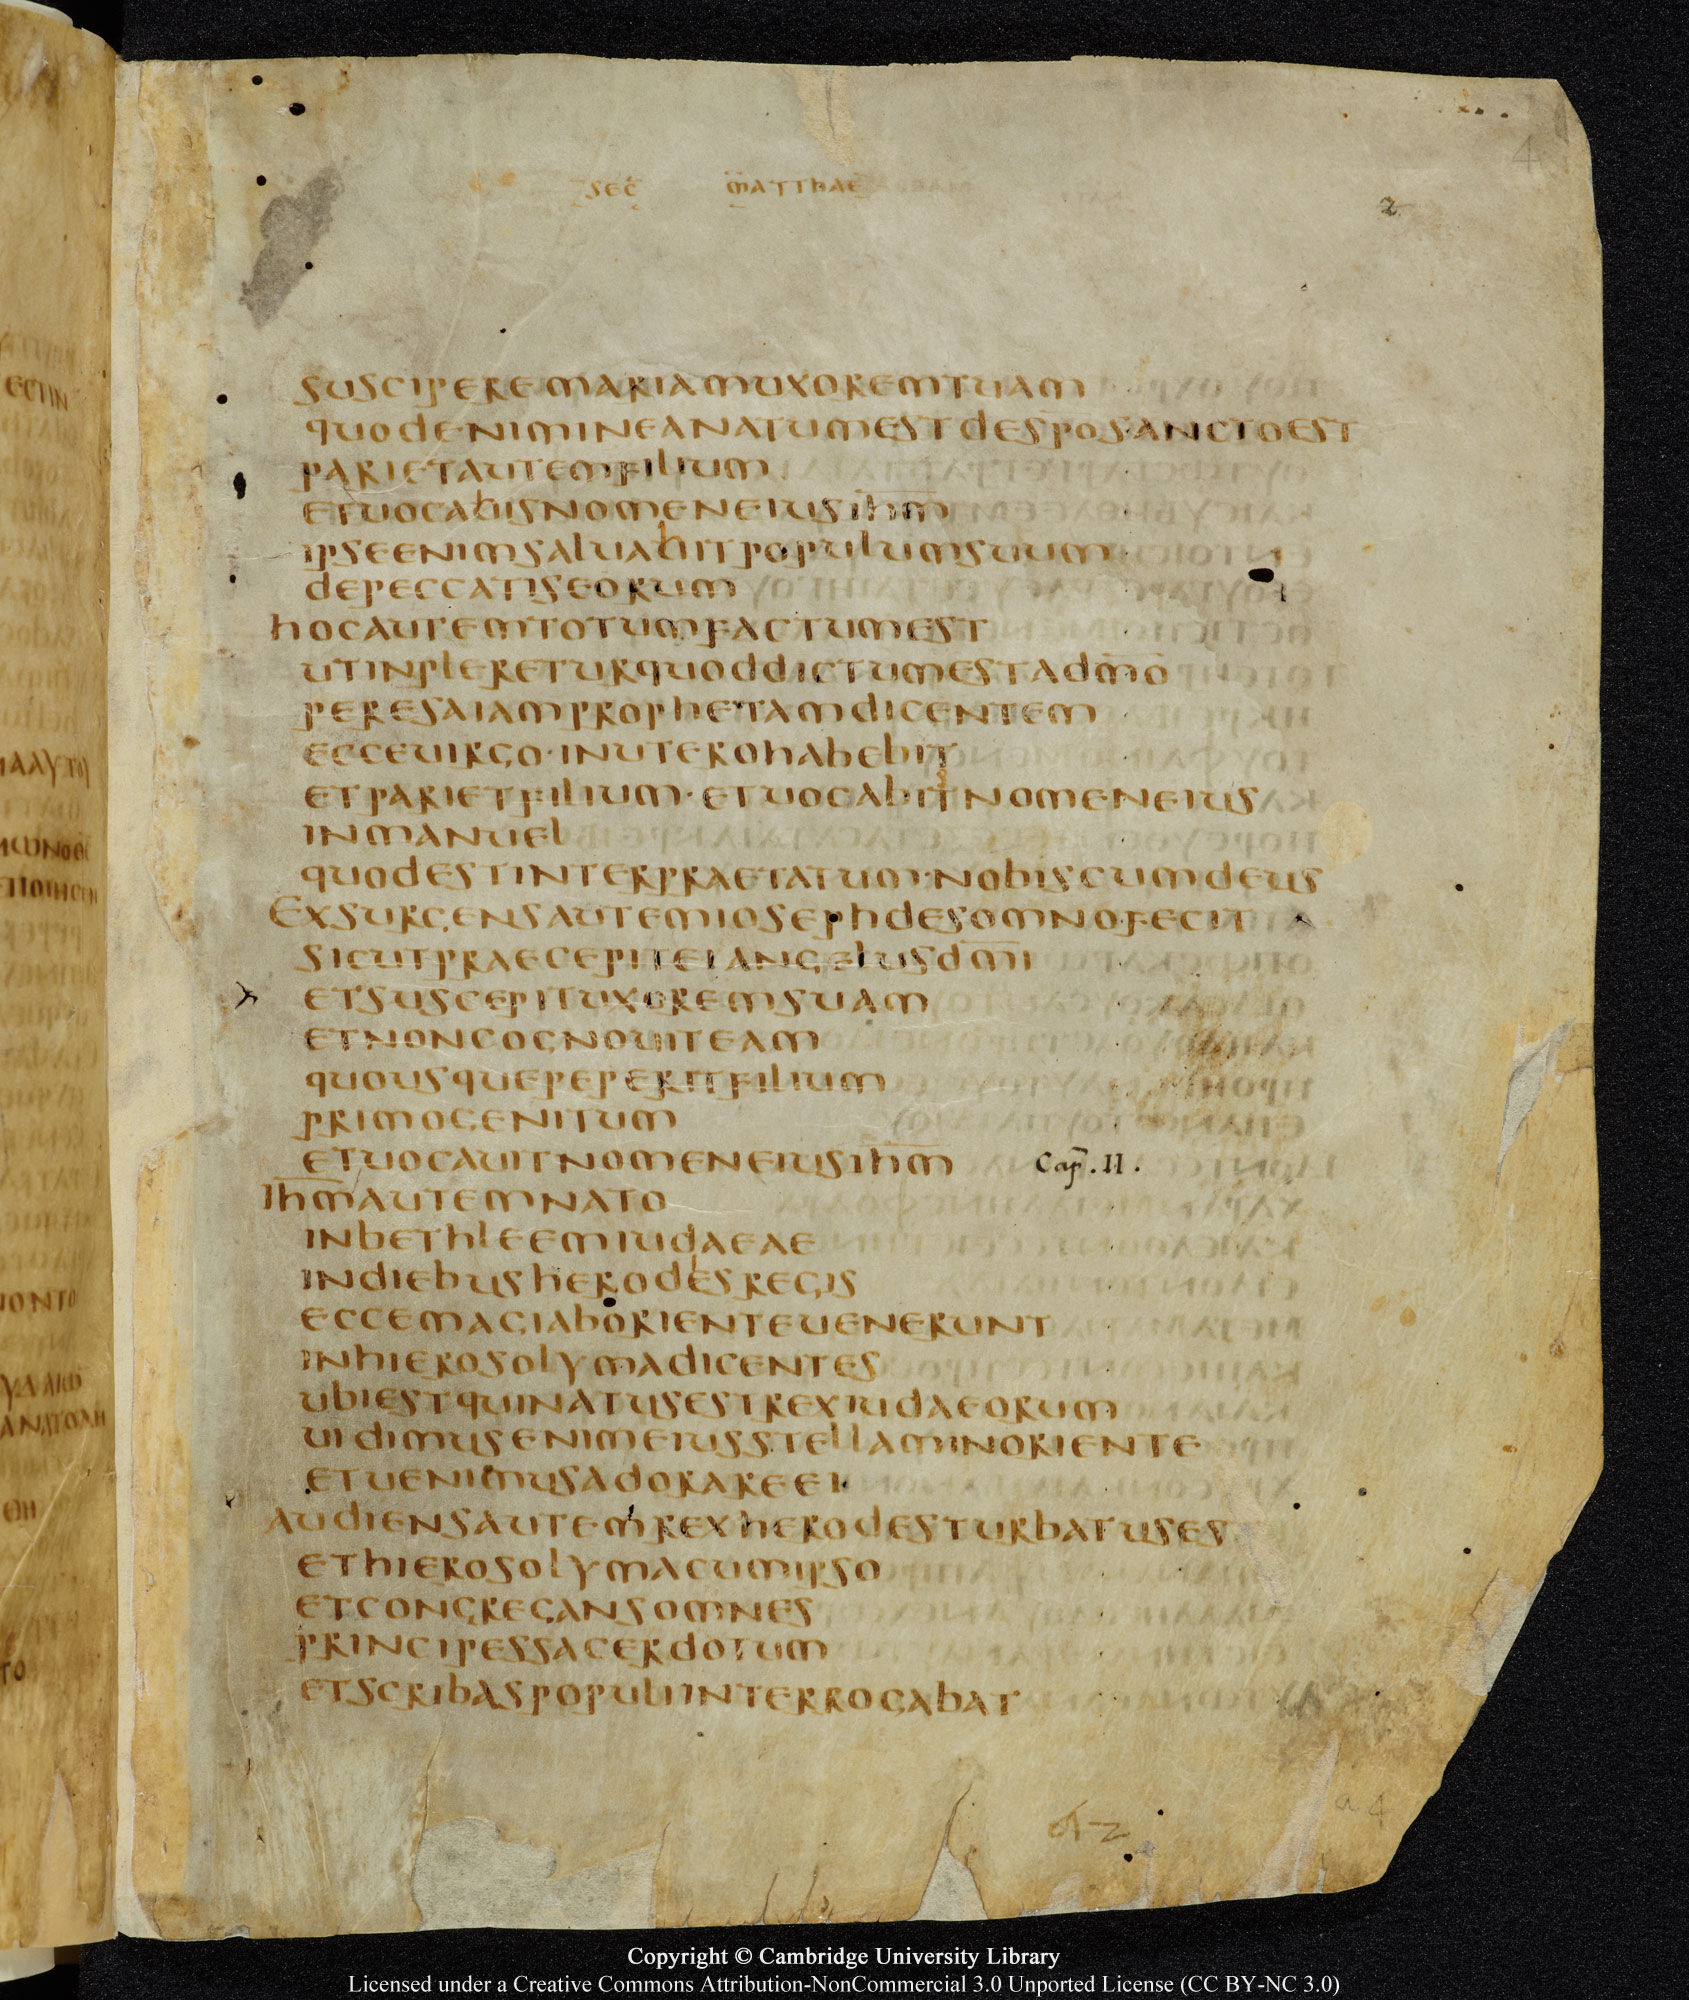 SEC̄ MATTHAE
4
2
SUSCIPERE MARIAM UXOREM TUAM
QUOD ENIM IN EA NATUM EST DE SP̄O SANCTO EST
PARIET AUTEM FILIUM
ET UOCABIS NOMEN EIUS IH̄M
IPSE ENIM SALUABIT POPULUM SUUM
DE PECCATIS EORUM
HOC AUTEM TOTUM FACTUM EST
UT INPLERETUR QUOD DICTUM EST A DM̄O
PER ESAIAM PROPHETAM DICENTEM
ECCE UIRGO · IN UTERO HABEBIT
ET PARIET FILIUM · ET UOCABIT NOMEN EIUS
INMANUEL
QUOD EST INTERPRAETATUM · NOBISCUM DEUS
EXSURGENS AUTEM IOSEPH DE SOMNO · FECIT
SICUT PRAECEPIT EI ANGELUS DM̄I
ET SUSCEPIT UXOREM SUAM
ET NON COGNOUIT EAM
QUOUSQUE PEPERIT FILIUM
PRIMOGENITUM
ET UOCAUIT NOMEN EIUS IH̄M Cap̄. II.
IH̄M AUTEM NATO
IN BETHLEEM IUDAEAE
IN DIEBUS HERODES REGIS
ECCE MAGI AB ORIENTE UENERUNT
IN HIEROSOLYMA DICENTES
UBI EST QUI NATUS EST REX IUDAEORUM
UIDIMUS ENIM EIUS STELLAM IN ORIENTE
ET UENIMUS ADORARE EI
AUDIENS AUTEM REX HERODES TURBATUS ES
ET HIEROSOLYMA CUM IPSO
ET CONGREGANS OMNES
PRINCIPES SACERDOTUM
ET SCRIBAS POPULI INTERROGABAT
a 4
Copyright © Cambridge University Library
Licensed under a Creative Commons Attribution-NonCommercial 3.0 Unported License (CC BY-NC 3.0)